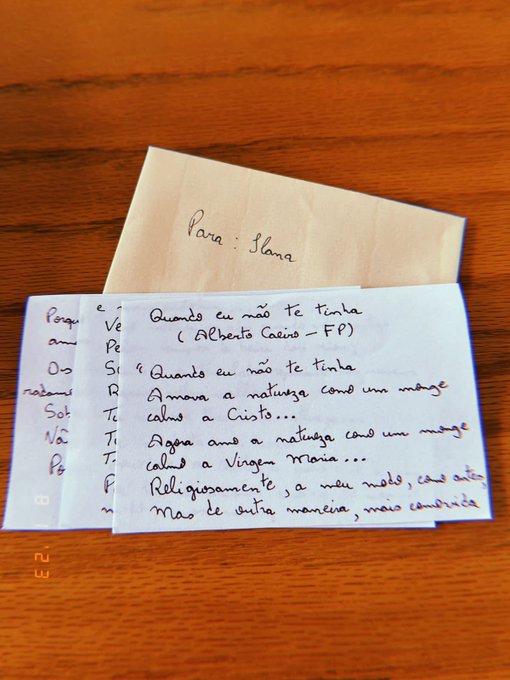 Para : Ilana
Porqu
am
Os
radam
Sob
Nã
Po
e
Ve
Pe
Se
R
Tu
Tu
T
P
m
Quando eu não te tinha
( Alberto Caeiro - FP)
"Quando eu não te tinha
Amava a natureza como um monge
calmo a Cristo...
Agora amo a natureza como um monge
calmo a Virgem Maria...
Religiosamente, a meu modo, como antes,
Mas de outra maneira, mais comovida
8 1 '23